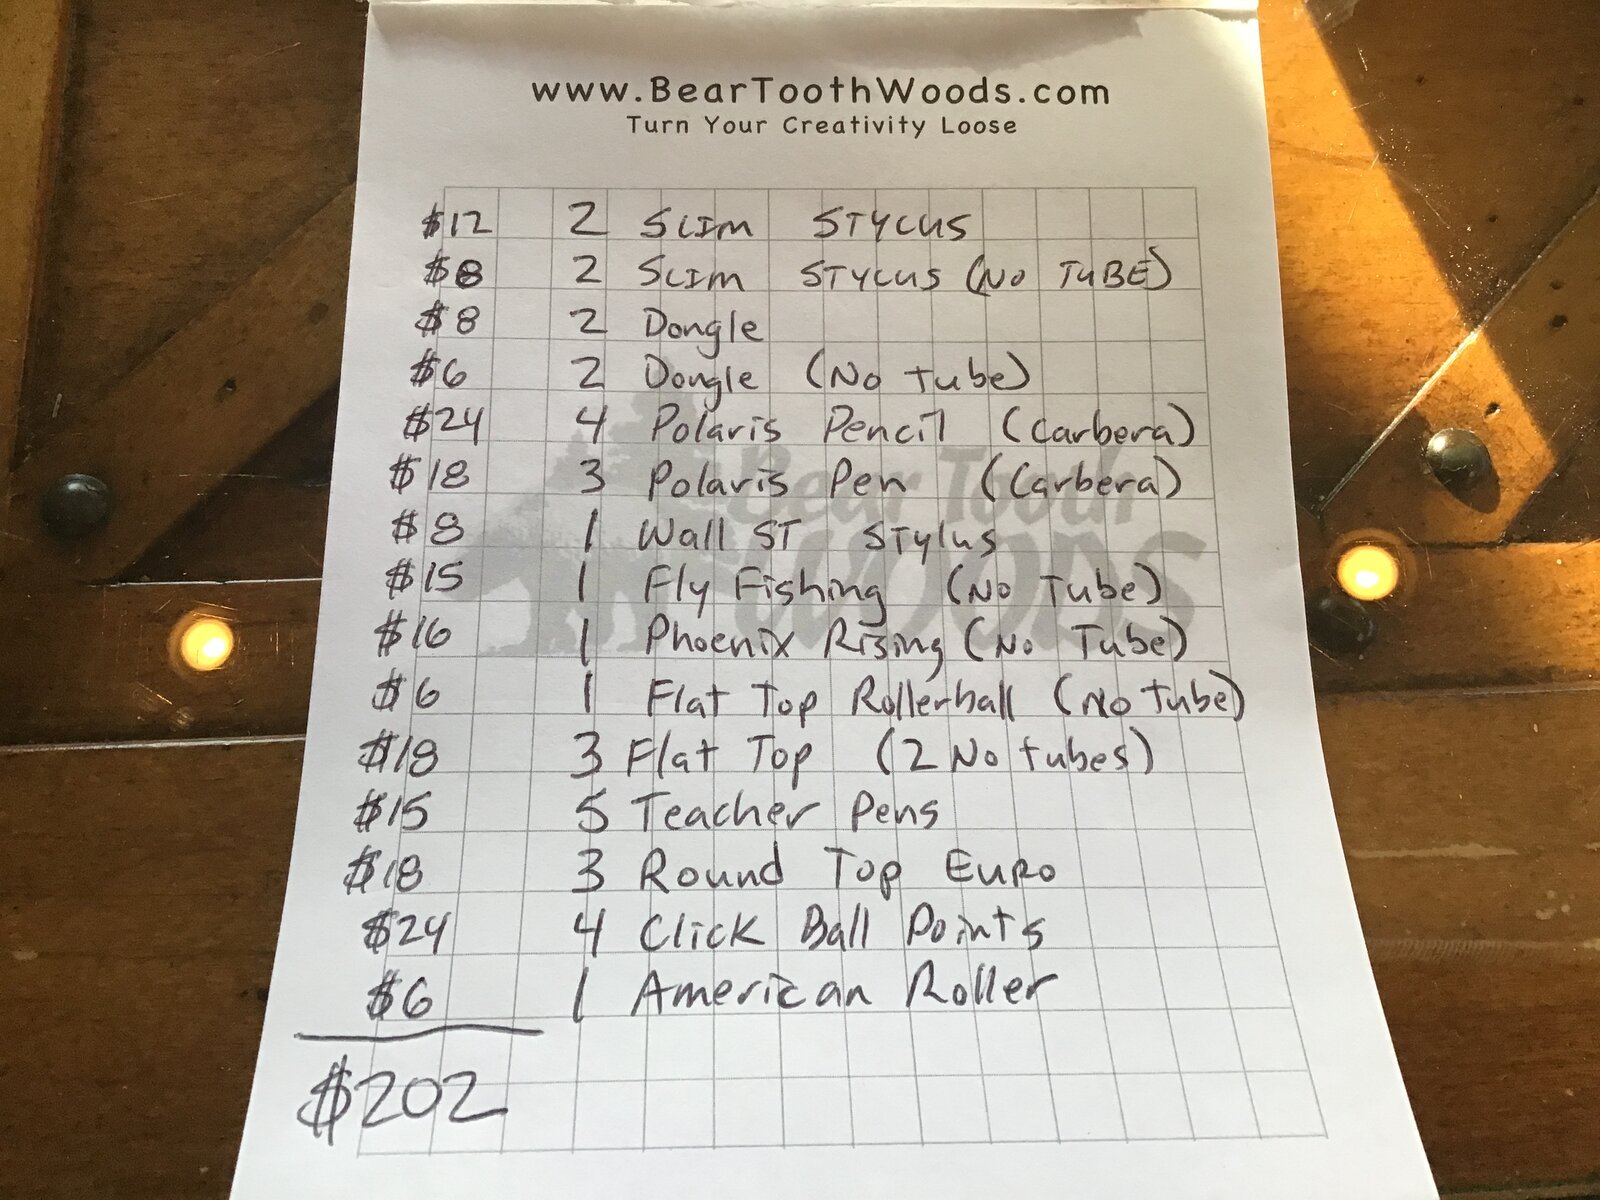 www.BearToothWoods.com
Turn Your Creativity Loose
$12 2 SLIM STYLUS
$8 2 SLIM STYLUS (NO TUBE)
$8 2 Dongle
$6 2 Dongle (No tube)
$24 4 Polaris Pencil (Carbera)
$18 3 Polaris Pen (Carbera)
$8 1 Wall ST Stylus
$15 1 Fly Fishing (No Tube)
$16 1 Phoenix Rising (No Tube)
$6 1 Flat Top Rollerball (No Tube)
$18 3 Flat Top (2 No tubes)
$15 5 Teacher Pens
$18 3 Round Top Euro
$24 4 Click Ball Points
$6 1 American Roller
$202
Bear Tooth
WOODS